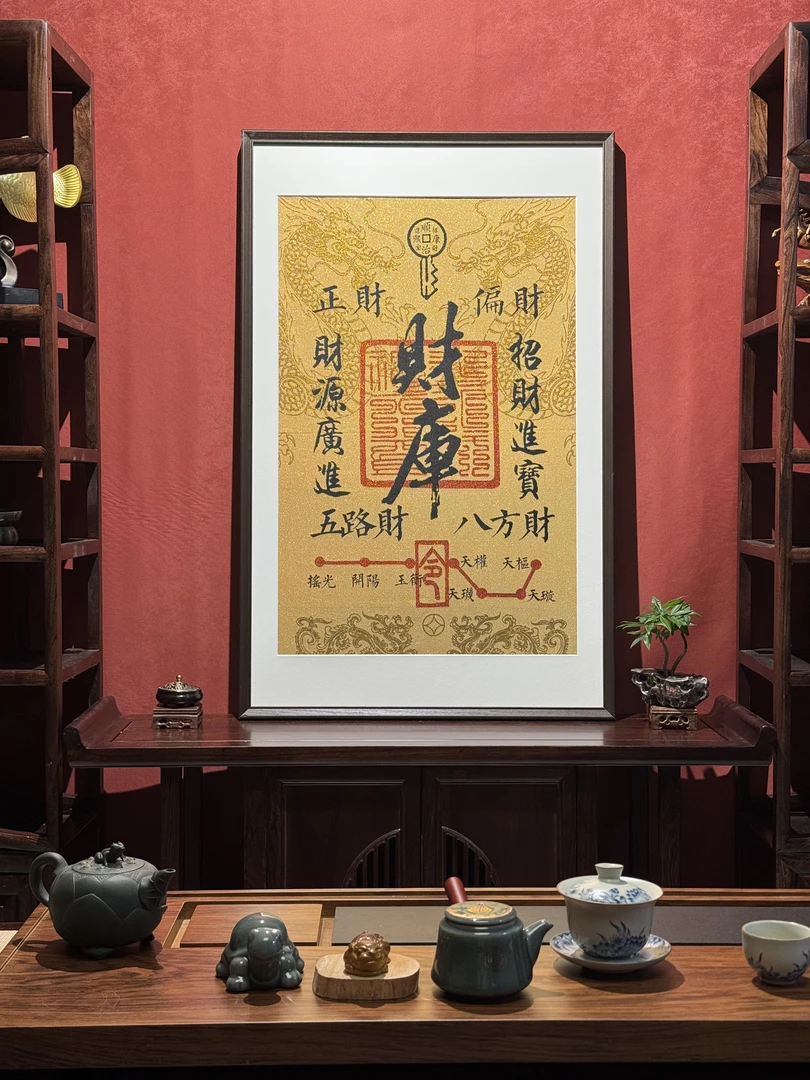 順治
正財
偏財
財庫
招財進寶
財源廣進
五路財
八方財
令
搖光
開陽
玉衡
天權
天樞
天璣
天璇